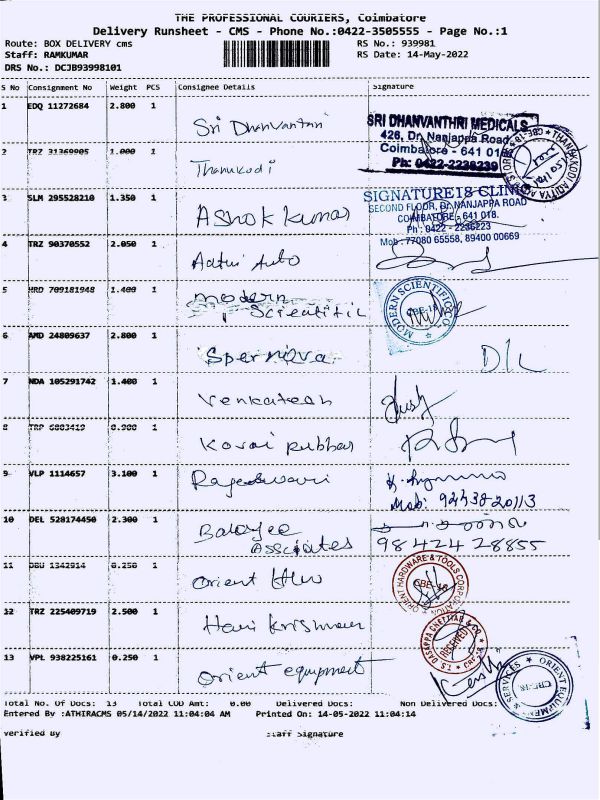 THE PROFESSIONAL COURIERS, Coimbatore
Delivery Runsheet - CMS - Phone No.:0422-3505555 - Page No.:1
Route: BOX DELIVERY cms RS No.: 939981
Staff: RAMKUMAR RS Date: 14-May-2022
DRS No.: DCJB93998101
S No Consignment No Weight PCS Consignee Details Signature
1 EDQ 11272684 2.800 1 Sri Dhanvantari
SRI DHANVANTHRI MEDICALS
426, Dr. Nanjappa Road
Coimbatore - 641 018
Ph: 0422-2236239
2 TRZ 31369905 1.000 1
3 SLM 295528210 1.350 1 Ashok Kumar
SIGNATURE18 CLINIC
SECOND FLOOR, Dr. NANJAPPA ROAD
COIMBATORE - 641 018.
Ph: 0422 - 2236223
Mob: 77080 65558, 89400 00669
4 TRZ 90370552 2.050 1 Auto
5 1.400 1 modern
Scientific
MODERN SCIENTIFIC CO
CBE-18
6 AMD 24809637 2.800 1 D/L
7 NDA 105291742 1.400 1 Venkatesh
8 TRP 6803419 0.900 1 Kovai Rubber
9 VLP 1114657 3.100 1 Rajeshwari
Mob: 9443820113
10 DEL 528174450 2.300 1 Balajee
Associates
98424 28855
11 1342914 0.250 1 Orient H/w
ORIENT HARDWARE & TOOLS CORPORATION
CBE-18
12 TRZ 225409719 2.500 1 Hari Krishnan
T.S. DASAPPA CHETTIAR & CO
RECEIVED
13 VPL 938225161 0.250 1 orient equipment
ORIENT EQUIPMENT SERVICES
CBE-18
Total No. Of Docs: 13 Total COD Amt: 0.00 Delivered Docs: Non Delivered Docs:
Entered By :ATHIRACMS 05/14/2022 11:04:04 AM Printed On: 14-05-2022 11:04:14
Verified By Staff Signature